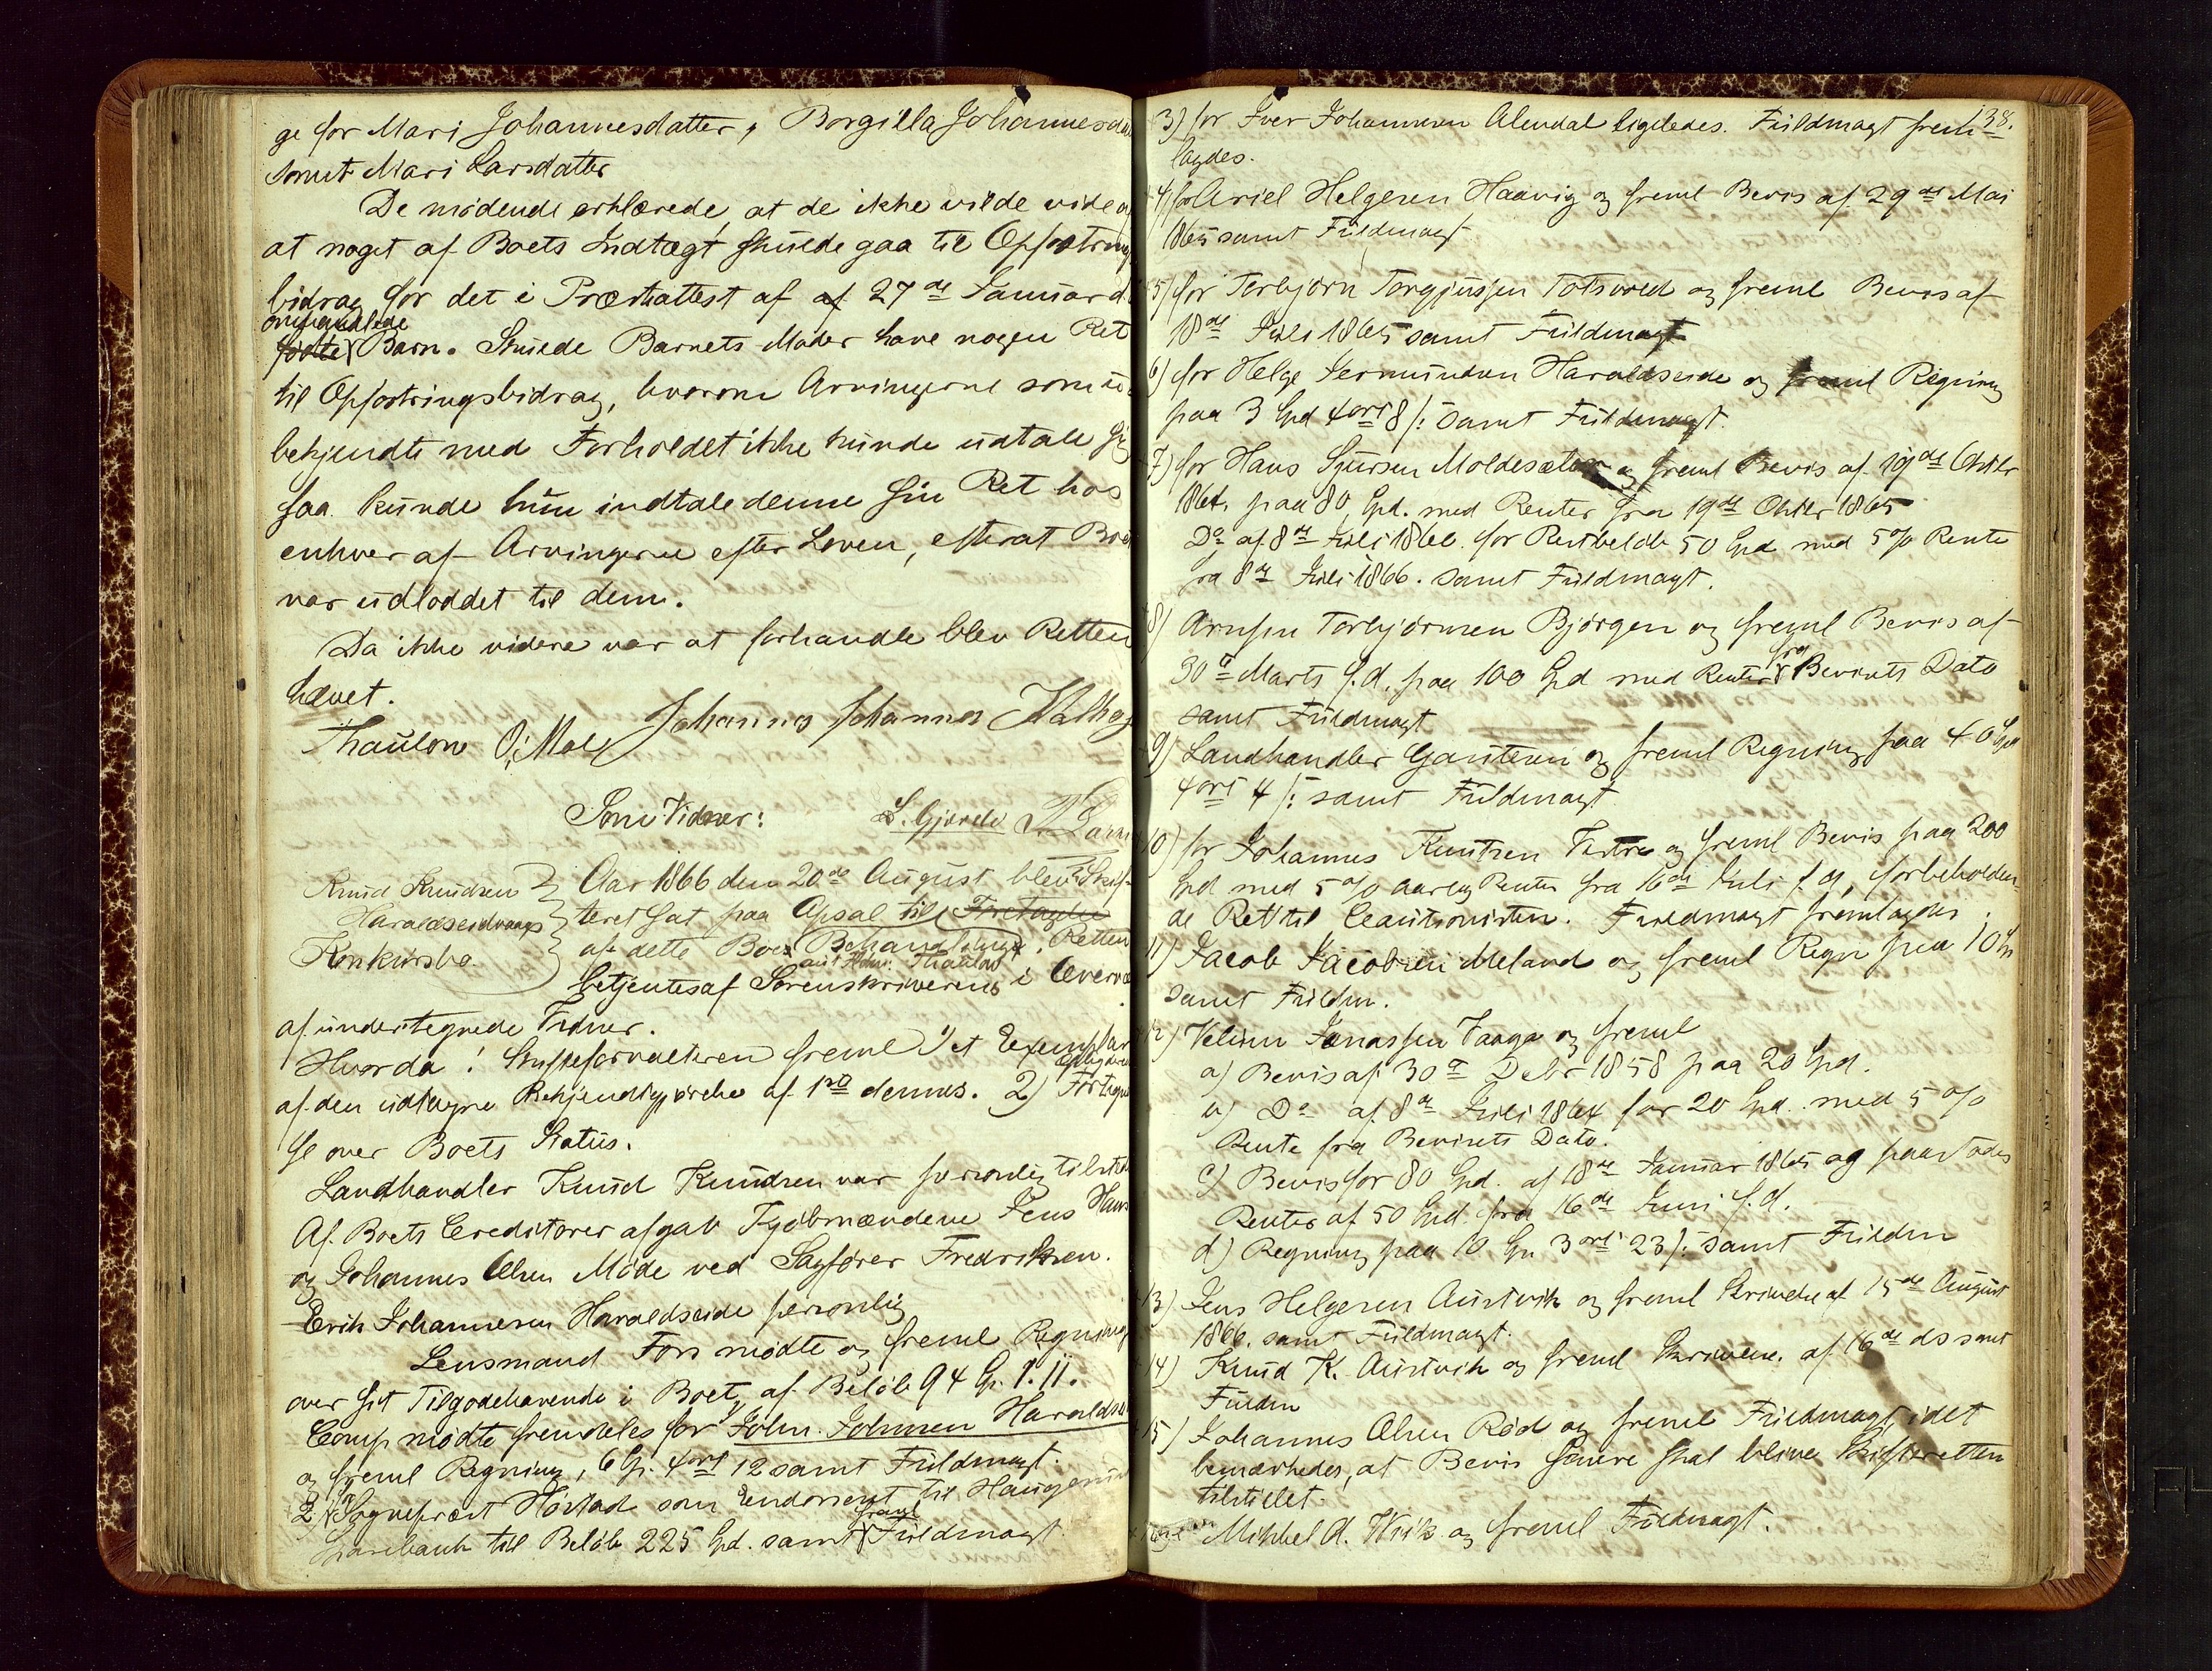 ge for Mari Johannesdatter, Borgilla Johannesda
samt Mari Larsdatter
De mødende erklærede, at de ikke vilde vide a
at noget af Boets Indtægt skulde gaa til Opfostrings
bidrag for det i Præsteattest af af 27de Januar d.
omhandlede
fødte Barn. Skulde Barnets Moder have nogen Ret
til Opfostringsbidrag, hvorom Arvingerne som u
bekjendte med Forholdet ikke kunde udtale sig
saa kunde hun indtale denne sin Ret hos
enhver af Arvingerne efter Loven, efterat Boet
var udloddet til dem.
Da ikke videre var at forhandle blev Retten
hævet.
Thaulow O. Moe Johannes Johannes
Som Vidner: L. Gjerde
Knud Knudsen
Haraldseidvaags
Konkursbo.
Aar 1866 den 20de August blev Skif-
teret sat paa Opsal til Foretagelse
af dette Boes Behandling. Retten
betjentes af Sorenskriveren i Overvær
af undertegnede Vidner.
Hvorda! Skifteforvalteren freml 1) et Exemplar
af den udtagne Bekjendtgjørelse af 1ste dennes. 2) Fortegnel
se over Boets Status.
Landhandler Knud Knudsen var personlig tilstede
Af Boets Creditorer afgav Kjøbmændene Jens Hans
og Johannes Olsen Møde ved Sagfører Fredriksen.
Erik Johannesen Haraldseide personlig
Lensmand Fors mødte og freml Regning
over sit Tilgodehavende i Boet, af Beløb 94 Sp. 1. 11.
Comp mødte fremdeles for 1) John Johnsen Haraldse
og freml Regning, 6 Sp. 4 ort 12 samt Fuldmagt.
2) Sogneprest Horstad som Endossent til Haugesund
freml
Sparebank till Beløb 225 Spd. samt Fuldmagt.
138.
3) for Iver Johannesen Alendal ligeledes. Fuldmagt frem-
lagdes.
4) for Ariel Helgesen Haavig og freml Bevis af 29de Mai
1865 samt Fuldmagt
5) for Torbjørn Torgjussen Totsvold og freml Bevis af
18de Juli 1865 samt Fuldmagt
6) for Helge Jermundsen Haraldseide og freml Regning
paa 3 Spd 4 ort 8 /: samt Fuldmagt.
7) for Hans Sjursen Moldesæter og freml Bevis af 19de Oktbr
1864 paa 80 Spd. med Renter fra 19de Oktbr 1865
Do af 8de Juli 1866 for Restbeløb 50 Spd med 5 % Rente
fra 8de Juli 1866. samt Fuldmagt.
8) Arnsen Torbjørnsen Bjørgen og freml Bevis af
fra
30te Marts f.d. paa 100 Spd med Renter Bevisets Dato
samt Fuldmagt
9) Landhandler Gautesen og freml Regning paa 40 Spd
4 ort 4 /: samt Fuldmagt
10) for Johannes Knutsen og freml Bevis paa 200
Spd med 5 % aarlig Rente fra 16de Juli f. A, forbeholden-
de Ret til Cautionisten. Fuldmagt fremlagdes.
11) Jacob Jacobsen Meland og freml Regn paa 10 Sp
samt Fuldm.
12) Velum Jonassen Vaage og freml
a) Bevis af 30te Debr 1858 paa 20 Spd.
b) Do af 8de Juli 1864 for 20 Spd. med 5 %
Rente fra Bevisets Dato.
c) Bevis for 80 Spd. af 18de Januar 1865 og paastodes
Renter af 50 Spd. fra 16de Juni f. A.
d) Regning paa 10 Sp. 3 ort 23 /: samt Fuldm
13) Jens Helgesen Austvik og freml Skrivelse af 15de August
1866. samt Fuldmagt.
14) Knud K. Austvik og freml Skrivelse af 16de ds samt
Fuldm
15) Johannes Olsen Rød og freml Fuldmagt, idet
bemærkedes, at Bevis senere skal blive Skifteretten
tilstillet.
16) Mikkel A. Wiik og freml Fuldmagt.